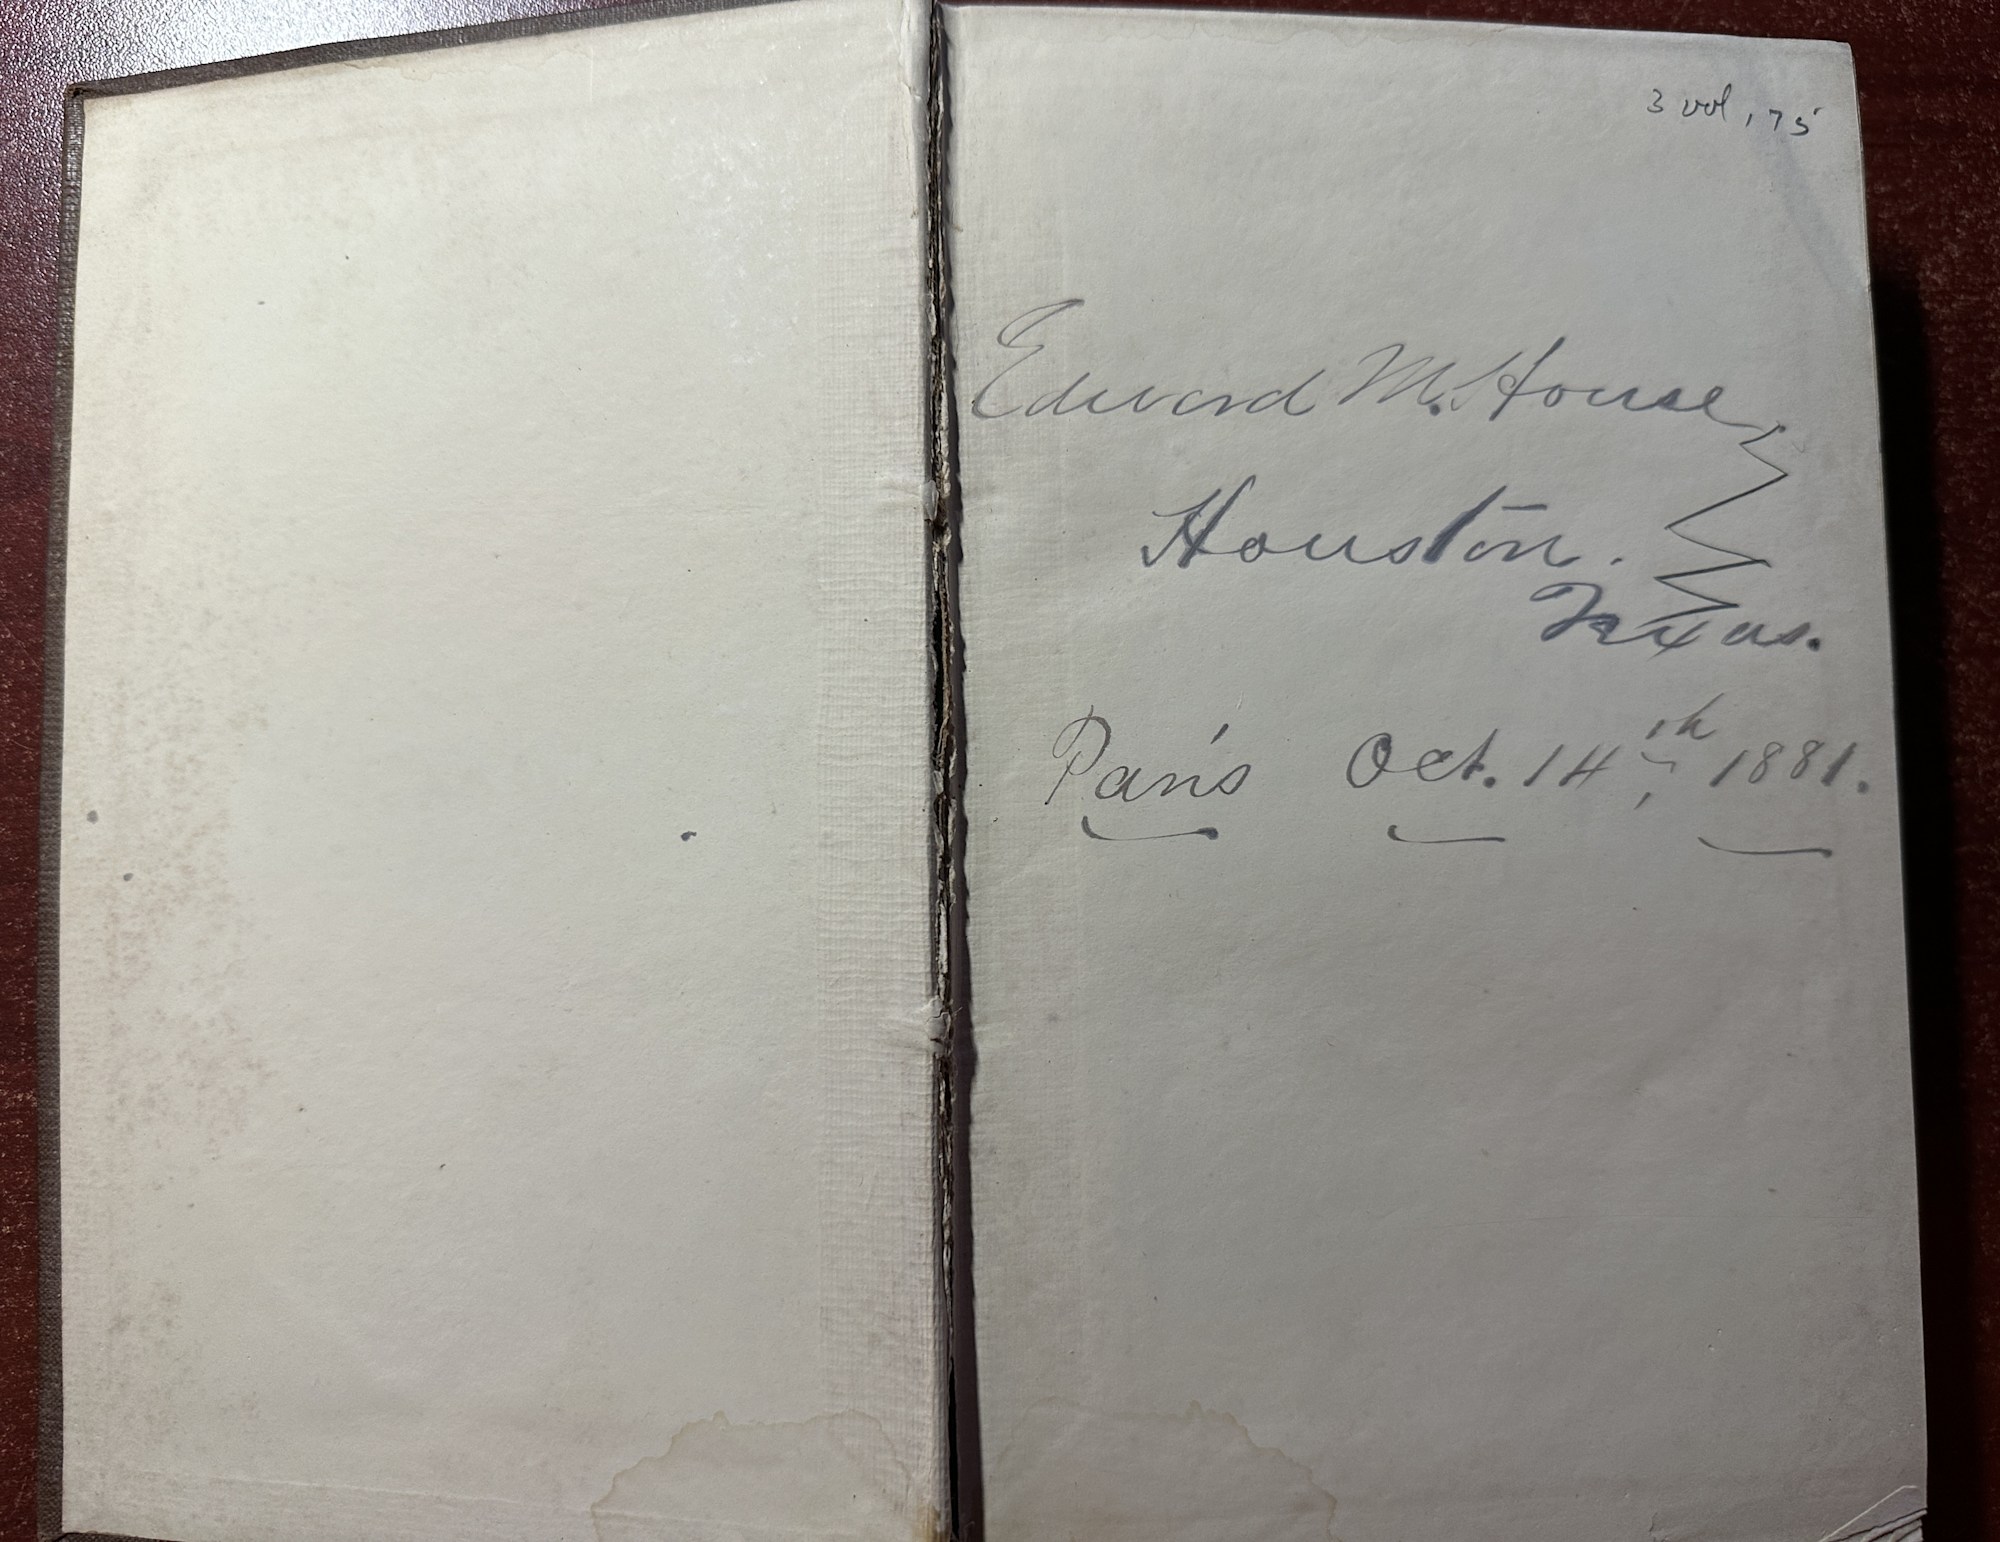 3 vol , 75
Edward M. House
Houston.
Texas.
Paris Oct. 14th, 1881.